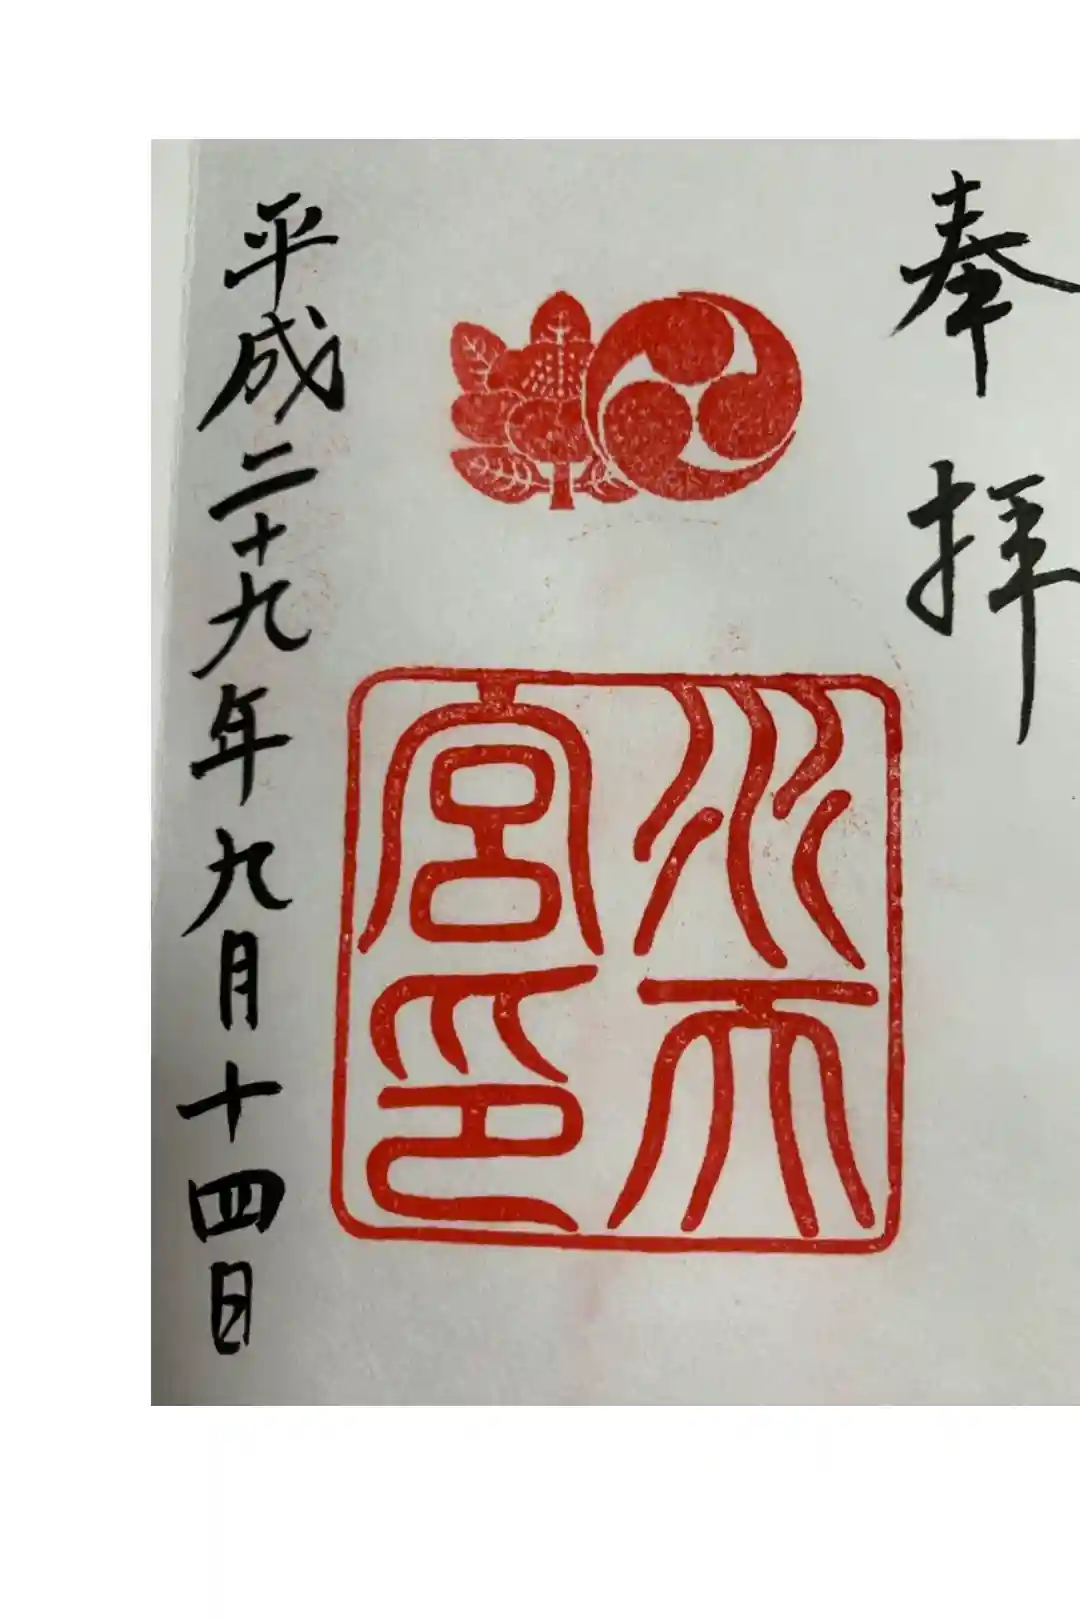 奉拝
水天
宮印
平成二十九年九月十四日